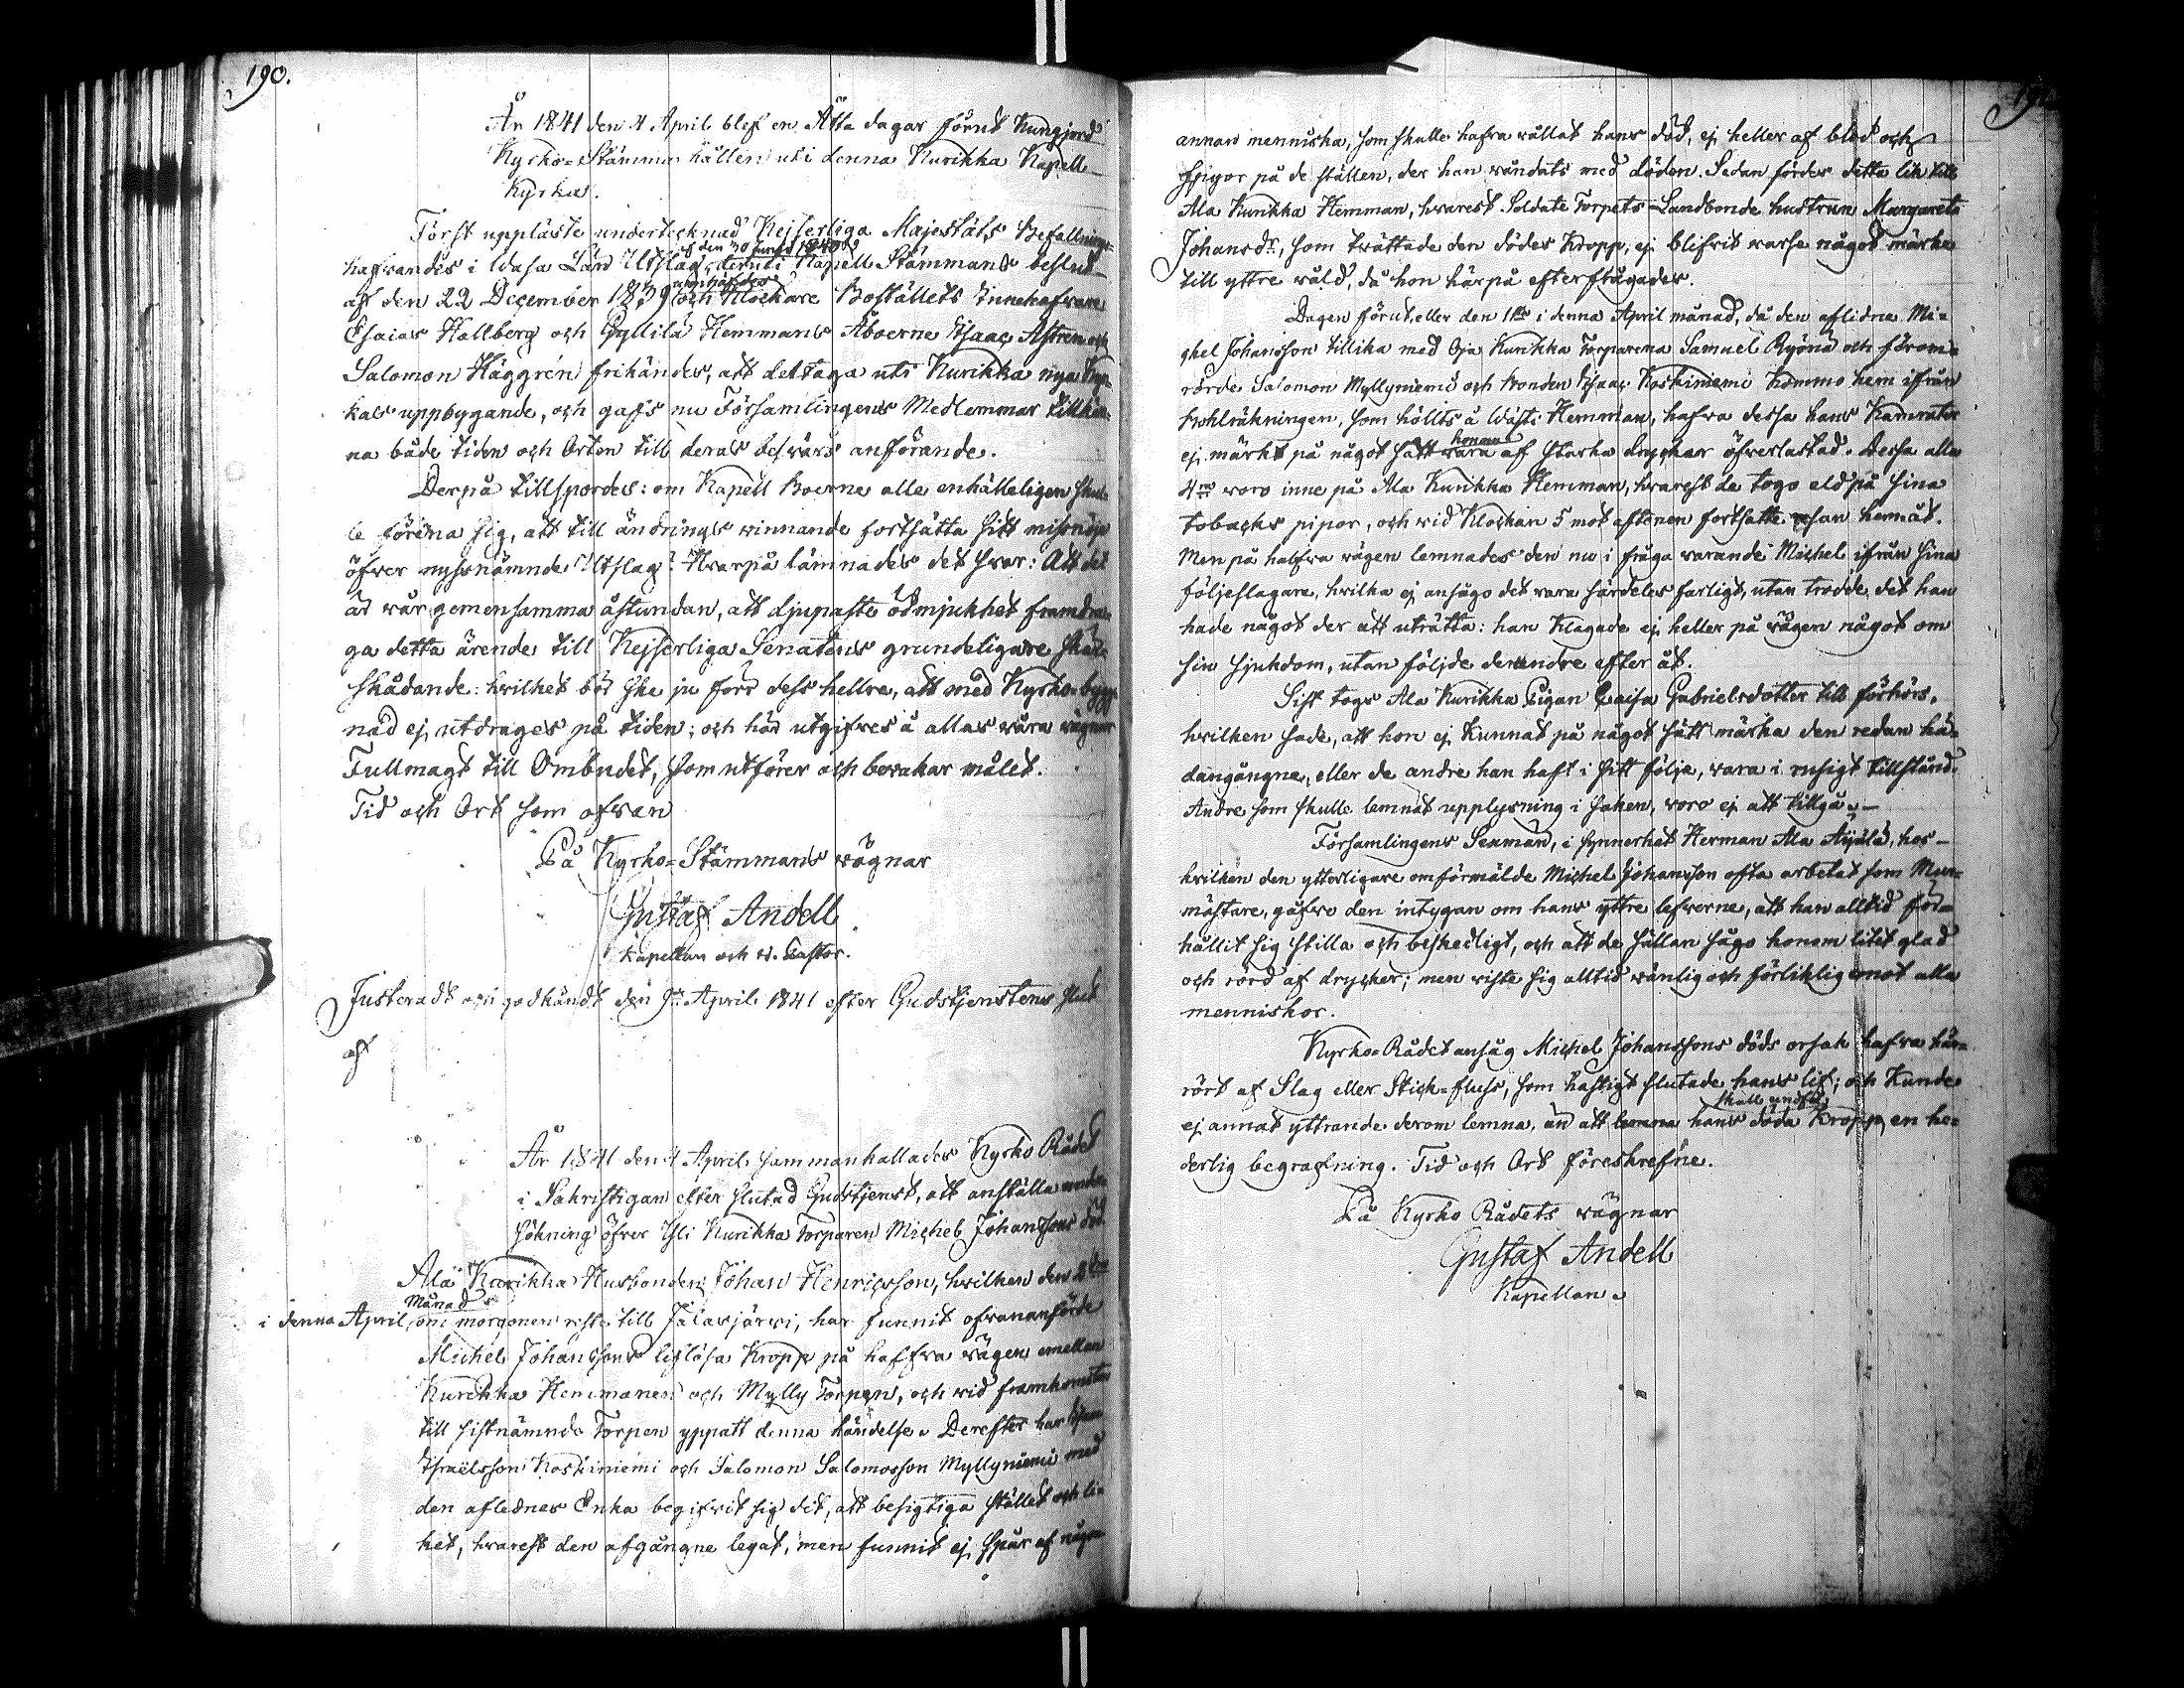 190.
År 1841 den 4 April blef en Åtta dagar förut Kungjord
Kyrko-Stämma hållen uti denna Kurikka Kapell
Kyrka.
Först uppläste undertecknad Kejserliga Majestäts Befallnings-
af den 30 Junii 1840
hafvandes i Wasa Län Utslag, deruti Kapell Stämmans beslut
af den 22 December 1839 och Klockare Boställets Innehafvare
Esaias Hallberg och Hemmans Åboerne Isaac och
Salomon Häggrén frikändes, att deltaga uti Kurikka nya Kyr-
kas uppbygande, och gafs nu Församlingens Medlemmar tillkän-
na både tiden och Orten till deras besvärs anförande.
Derpå tillspordes: om Kapell Boerne alle enhälleligen skul-
le förena sig, att till ändrings winnande fortsätta sitt missnöje
öfver nyssnämnde Utslag? Hvarpå lämnades det svar: Att det
är vår gemensamma åstundan, att djupaste ödmjukhet framdra-
ga detta ärende till Kejserliga Senatens grundeligare skär-
skådande: hvilket bör ske ju förr dess hellre, att med Kyrko-bygg-
nad ej utdrages på tiden; och här utgifves å allas våra vägnar
Fullmagt till Ombudet, som utförer och bevakar målet.
Tid och Ort som ofvan
På Kyrko-Stämmans vägnar
Gustaf Andell
Kapellan och v. Pastor.
Justeradt och godkändt den 9de April 1841 efter Gudstjenstens slut
af
År 1841 den 4 April sammankallades Kyrko Rådet
i Sakristigan efter slutad Gudstjenst, att anställa under-
sökning öfver Yli Kurikka Torparen Michel Johanssons död.
Ala Kurikka Husbonden Johan Henricsson, hvilken den 2dra
Månad
i denna April om morgonen reste till Jalasjärvi, har funnit ofvananförde
Michel Johanssons liflösa Kropp på halfva vägen emellan
Kurikka Hemmanen och Mylly Torpen, och vid framkomsten
till sistnämnde Torpen yppatt denna händelse. Derefter har Isaac
Israëlsson Koskiniemi och Salomon Salomosson Myllyniemi med
den aflednes Enka begifvit sig dit, att besigtiga stället och li-
ket, hvarest den afgångne legat, men funnit ej spår af någon
191.
annan menniska, som skulle hafva vållat hans död, ej heller af blod och
på de ställen, der han våndats med döden. Sedan fördes detta lik till
Ala Kurikka Hemman, hvarest Soldate Torpets-Landbonde hustrun Margareta
Johansdr, som tvättade den dödes Kropp, ej blifvit varse något märke
till yttre våld, då hon härpå efterfrågades.
Dagen förut, eller den 1sta i denna April månad, då den aflidne Mi-
chel Johansson tillika med Oja Kurikka Torparena Samuel Ryönä och förom-
rörde Salomon Myllyniemi och Bonden Isaac Koskiniemi kommo hem ifrån
hållts å Hemman, hafva dessa hans Kamerater
honom
ej märkt på något sätt vara af starka drycker öfverlastad. Dessa alla
4ra voro inne på Ala Kurikka Hemman, hvarest de togo eld på sina
tobacks pipor, och vid Klockan 5 mot aftonen fortsatte resan hemåt.
Men på halfva vägen lemnades den nu i fråga varande Michel ifrån sina
följeslagare, hvilka ej ansågo det vara särdeles farligt, utan trodde, det han
hade något der att uträtta: han klagade ej heller på vägen något om
sin sjukdom, utan följde de andre efter åt.
Sist togs Ala Kurikka Pigan Caisa Gabrielsdotter till förhörs,
hvilken sade, att hon ej kunnat på något sätt märka den redan hä-
dangångne, eller de andre han haft i sitt följe, vara i rusigt tillstånd.
Andre som skulle lemnat upplysning i saken, voro ej att tillgå.—
Församlingens Sexmän, i synnerhet Herman Ala Äijälä, hos-
hvilken den ytterligare omförmälde Michel Johansson ofta arbetat som Mur-
mästare, gåfvo den intygan om hans yttre lefverne, att han alltid för-
hållit sig stilla och beskedligt, och att de sällan sågo honom litet glad
och rörd af drycker; men viste sig alltid vänlig och förliklig emot alla
menniskor.
Kyrko-Rådet ansåg Michel Johanssons döds orsak hafva här-
rört af Slag eller Stick-fluss, som hastigt slutade hans lif; och kunde
skall undfå
ej annat yttrande derom lemna, än att lemna hans döda Kropp en he-
derlig begrafning. Tid och Ort föreskrefne.
På Kyrko Rådets vägnar
Gustaf Andell
Kapellan.